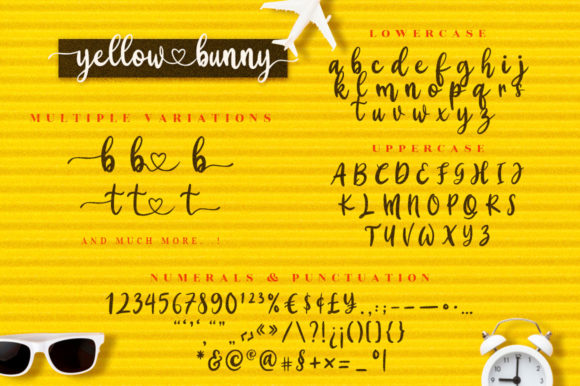 yellow bunny
LOWERCASE
a b c d e f g h i j
k l m n o p q r s
t u v w x y z
MULTIPLE VARIATIONS
b b b
t t t
AND MUCH MORE...!
UPPERCASE
A B C D E F G H I J
K L M N O P Q R S
T U V W X Y Z
NUMERALS & PUNCTUATION
1234567890¹²³%€$¢£¥.,:;-–—•·…
“‘‚’„“”‹›«»/\?!¿¡()[]{}
*&©®@#§+×=_°ªº|